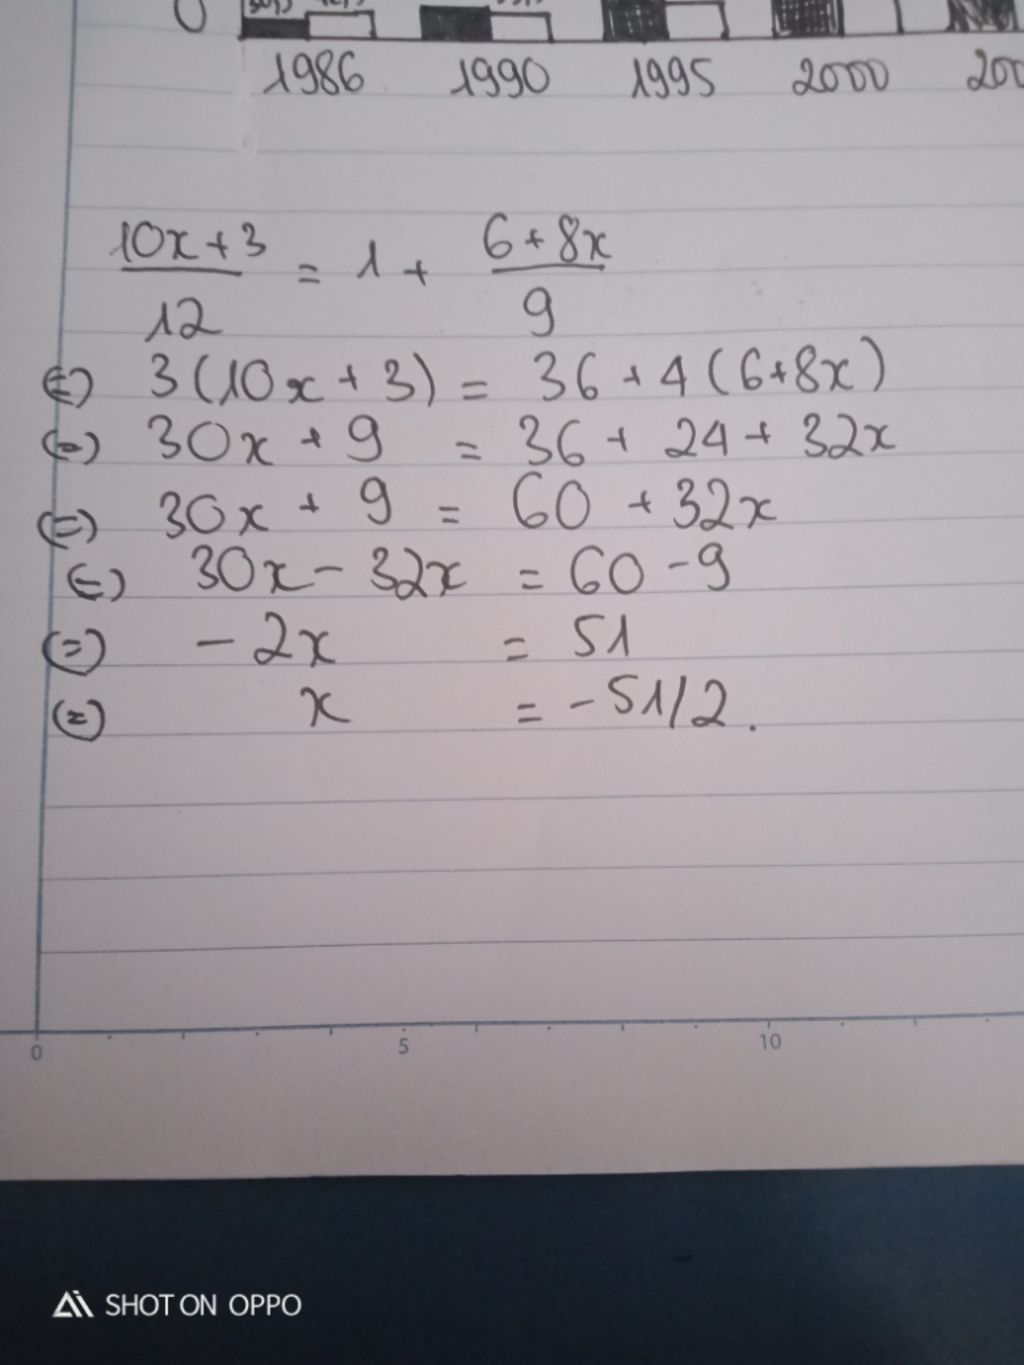 0
1986 1990 1995 2000 200
10x+3/12 = 1 + 6+8x/9
(=) 3(10x+3) = 36+4(6+8x)
(=) 30x + 9 = 36 + 24 + 32x
(=) 30x + 9 = 60 + 32x
(=) 30x - 32x = 60 - 9
(=) - 2x = 51
(=) x = - 51/2.
0 5 10
SHOT ON OPPO